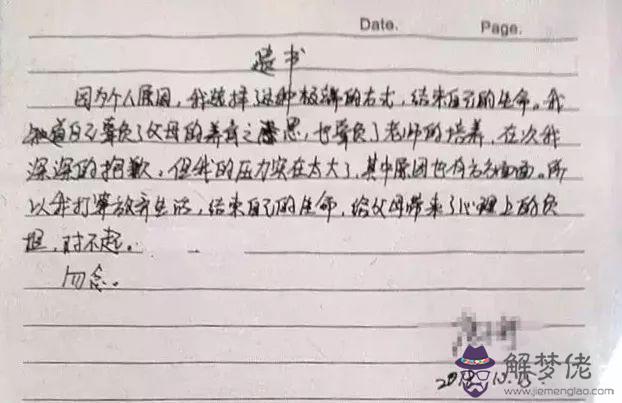 Date. Page.
遗书
因为个人原因,我选择了这种极端的方式,结束自己的生命。我
知道自己辜负了父母的养育之恩,也辜负了老师的培养,在次我
深深的抱歉。但我的压力实在太大了,其中原因也有方方面面。所
以我打算放弃生活,结束自己的生命,给父母带来了心理上的负
担,对不起。
勿念。
解梦佬
www.jiemenglao.com